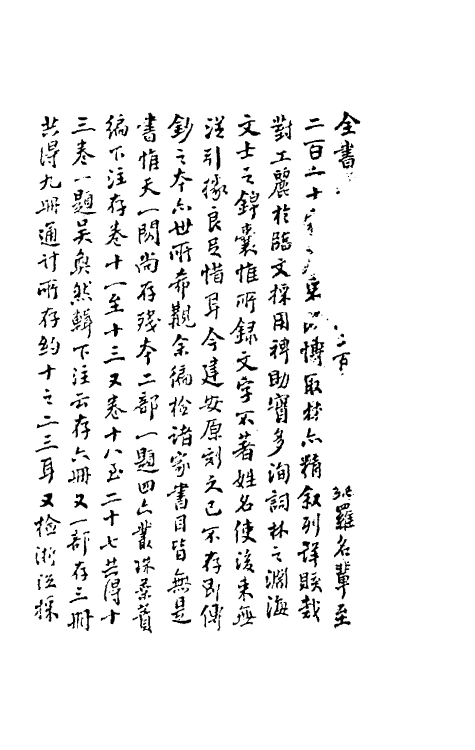 全書二百羅名輩至
二百二十采博取扶亦精叙列詳賅裁
對工麗於臨文採用裨助實多洵詞林之淵海
文士之錦囊惟所錄文字不著姓名使後來無
從引據良足惜耳今建安原刻之已不存即傳
鈔之本亦世所希觀余徧檢諸家書目皆無是
書惟天一閣尚存殘本二部一題四六叢珠彙
編下注存卷十一至十三又卷十八至二十七共得十
三卷一題吳奐然輯下注云存六冊又一部存三冊
共得九冊通計所存約十之二三耳又檢浙江採